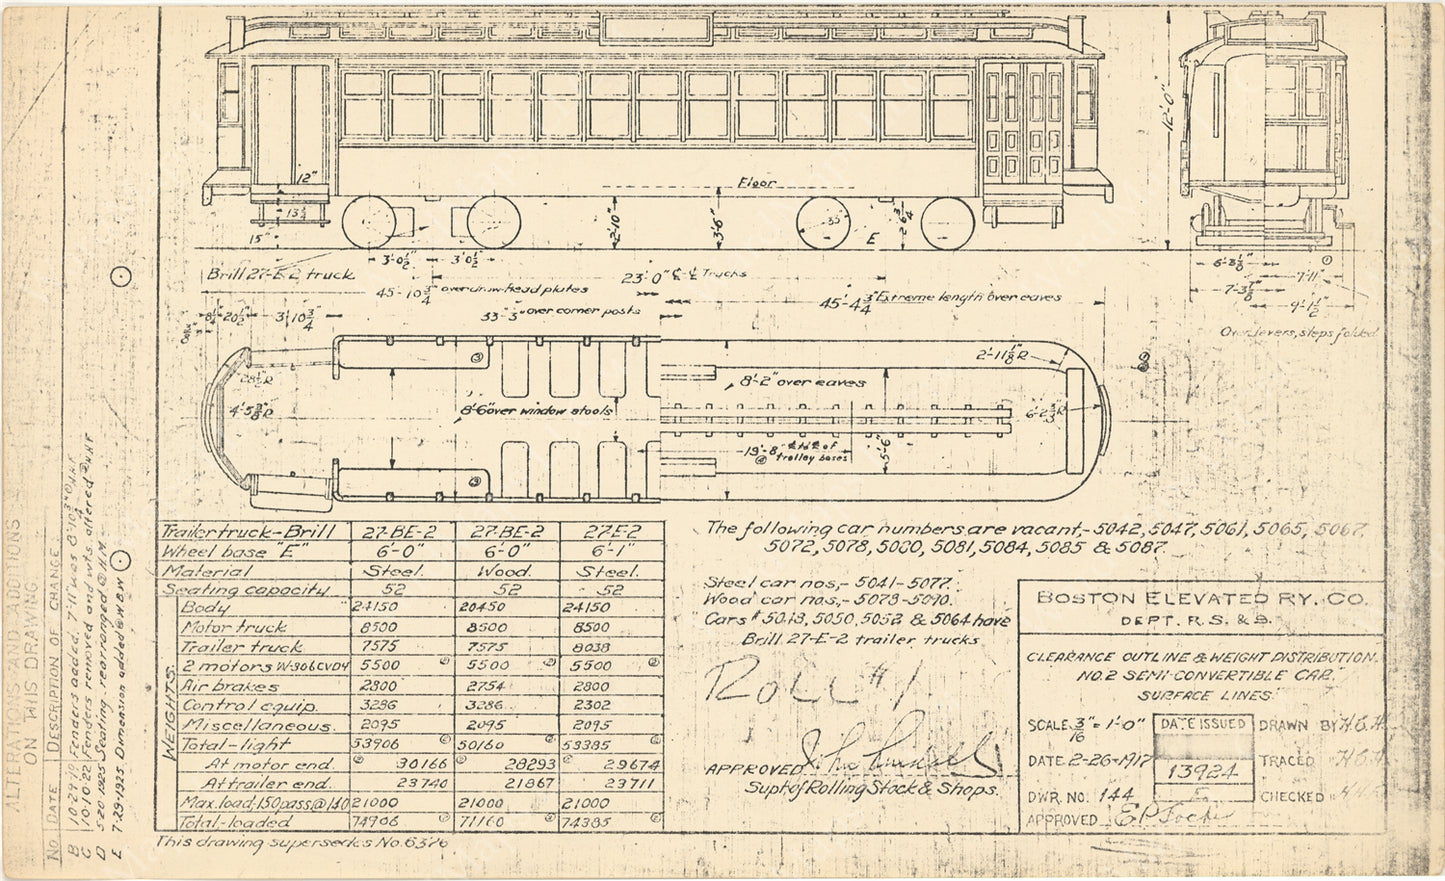 12'-0"
12"
13 1/4
15"
Floor
2'-10"
3'-6"
33"
E
2'-6 3/4
3'-0 1/2" 3'-0 1/2"
Brill 27-E-2 truck
23'-0" ℄-℄ Trucks
45'-10 3/4" over draw-head plates
45'-4 3/4" Extreme length over eaves
33'-3" over corner posts
8 1/4 20 1/2 3'-10 3/4
6'-3 3/8"
7'-11"
7'-3 3/8"
9'-1 1/2"
Over levers, steps folded
28 1/2" R
4'-5 3/8" R
8'-6" over window stools
8'-2" over eaves
2'-11 1/8" R
6'-2 3/4" R
19'-8" ℄ to ℄ of
trolley bases
5'-6"
Trailer truck-Brill 27-BE-2 27-BE-2 27-E-2
Wheel base "E" 6'-0" 6'-0" 6'-1"
Material Steel. Wood. Steel.
Seating capacity 52 52 52
WEIGHTS
Body 24150 20450 24150
Motor truck 8500 8500 8500
Trailer truck 7575 7575 8038
2 motors W-306CVD4 5500 5500 5500
Air brakes 2800 2754 2800
Control equip. 3286 3286 2302
Miscellaneous 2095 2095 2095
Total-light 53906 50160 53385
At motor end. 30166 28293 29674
At trailer end. 23740 21867 23711
Max.load, 150 pass@140 21000 21000 21000
Total-loaded 74906 71160 74385
This drawing supersedes No. 6376
The following car numbers are vacant,- 5042, 5047, 5061, 5065, 5067,
5072, 5078, 5080, 5081, 5084, 5085 & 5087.
Steel car nos,- 5041-5077.
Wood car nos,- 5078-5090.
Cars # 5048, 5050, 5052 & 5064 have
Brill 27-E-2 trailer trucks
ROLL #1
APPROVED John
Supt of Rolling Stock & Shops.
BOSTON ELEVATED RY. CO.
DEPT. R.S. & B.
CLEARANCE OUTLINE & WEIGHT DISTRIBUTION.
NO. 2 SEMI-CONVERTIBLE CAR.
SURFACE LINES.
SCALE 3/16" = 1'-0"
DATE 2-26-1917
DWR. NO. 144
APPROVED
DATE ISSUED
13924
E
DRAWN BY
TRACED
CHECKED
ALTERATIONS AND ADDITIONS
ON THIS DRAWING
NO. DATE DESCRIPTION OF CHANGE
B 10-24-19 Fenders added, 7'-11" was 8'-10 3/4"
C 10-10-22 Fenders removed and wts altered
D 5-20 1925 Seating rearranged
E 7-29-1925 Dimension added